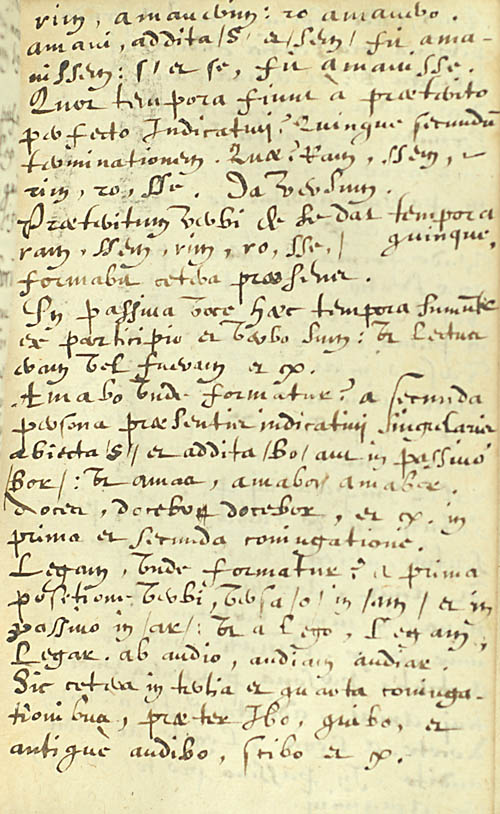 rim, amaverim: ro amavero.
amavi, addita /s/ et /sem/ fit ama-
uissem: s/ et se, fit amauisse.
Quot tempora fiunt à præterito
perfecto Indicatiui? Quinque secundũ
terminationem. Quæ? Ram, ssem,
rim, ro, sse. Da versum.
Præteritum verbi de se dat tempora
quinque,
ram, ssem, rim, ro, sse, /
formabit cetera præsens.
In passiua voce hæc tempora sumũt
ex participio et verbo sum: vt Lectus
eram vel fueram et c.
Amabo vnde formatur? a secunda
persona præsentis indicatiui singularis
abiecta /s/ et addita /bo/ aut in passiuo
/bor/: vt amas, amabo, amabor.
Doces, docebo, docebor, et c. in
prima et secunda coniugatione.
Legam, vnde formatur? a prima
positione verbi, versa /o/ in /am/ et in
passiuo in /ar/: vt a Lego, Legam,
Legar. ab audio, audiam audiar.
Sic cetera in tertia et quarta coniuga-
tionibus, præter Ibo, quibo, et
antiquè audibo, scibo et c.